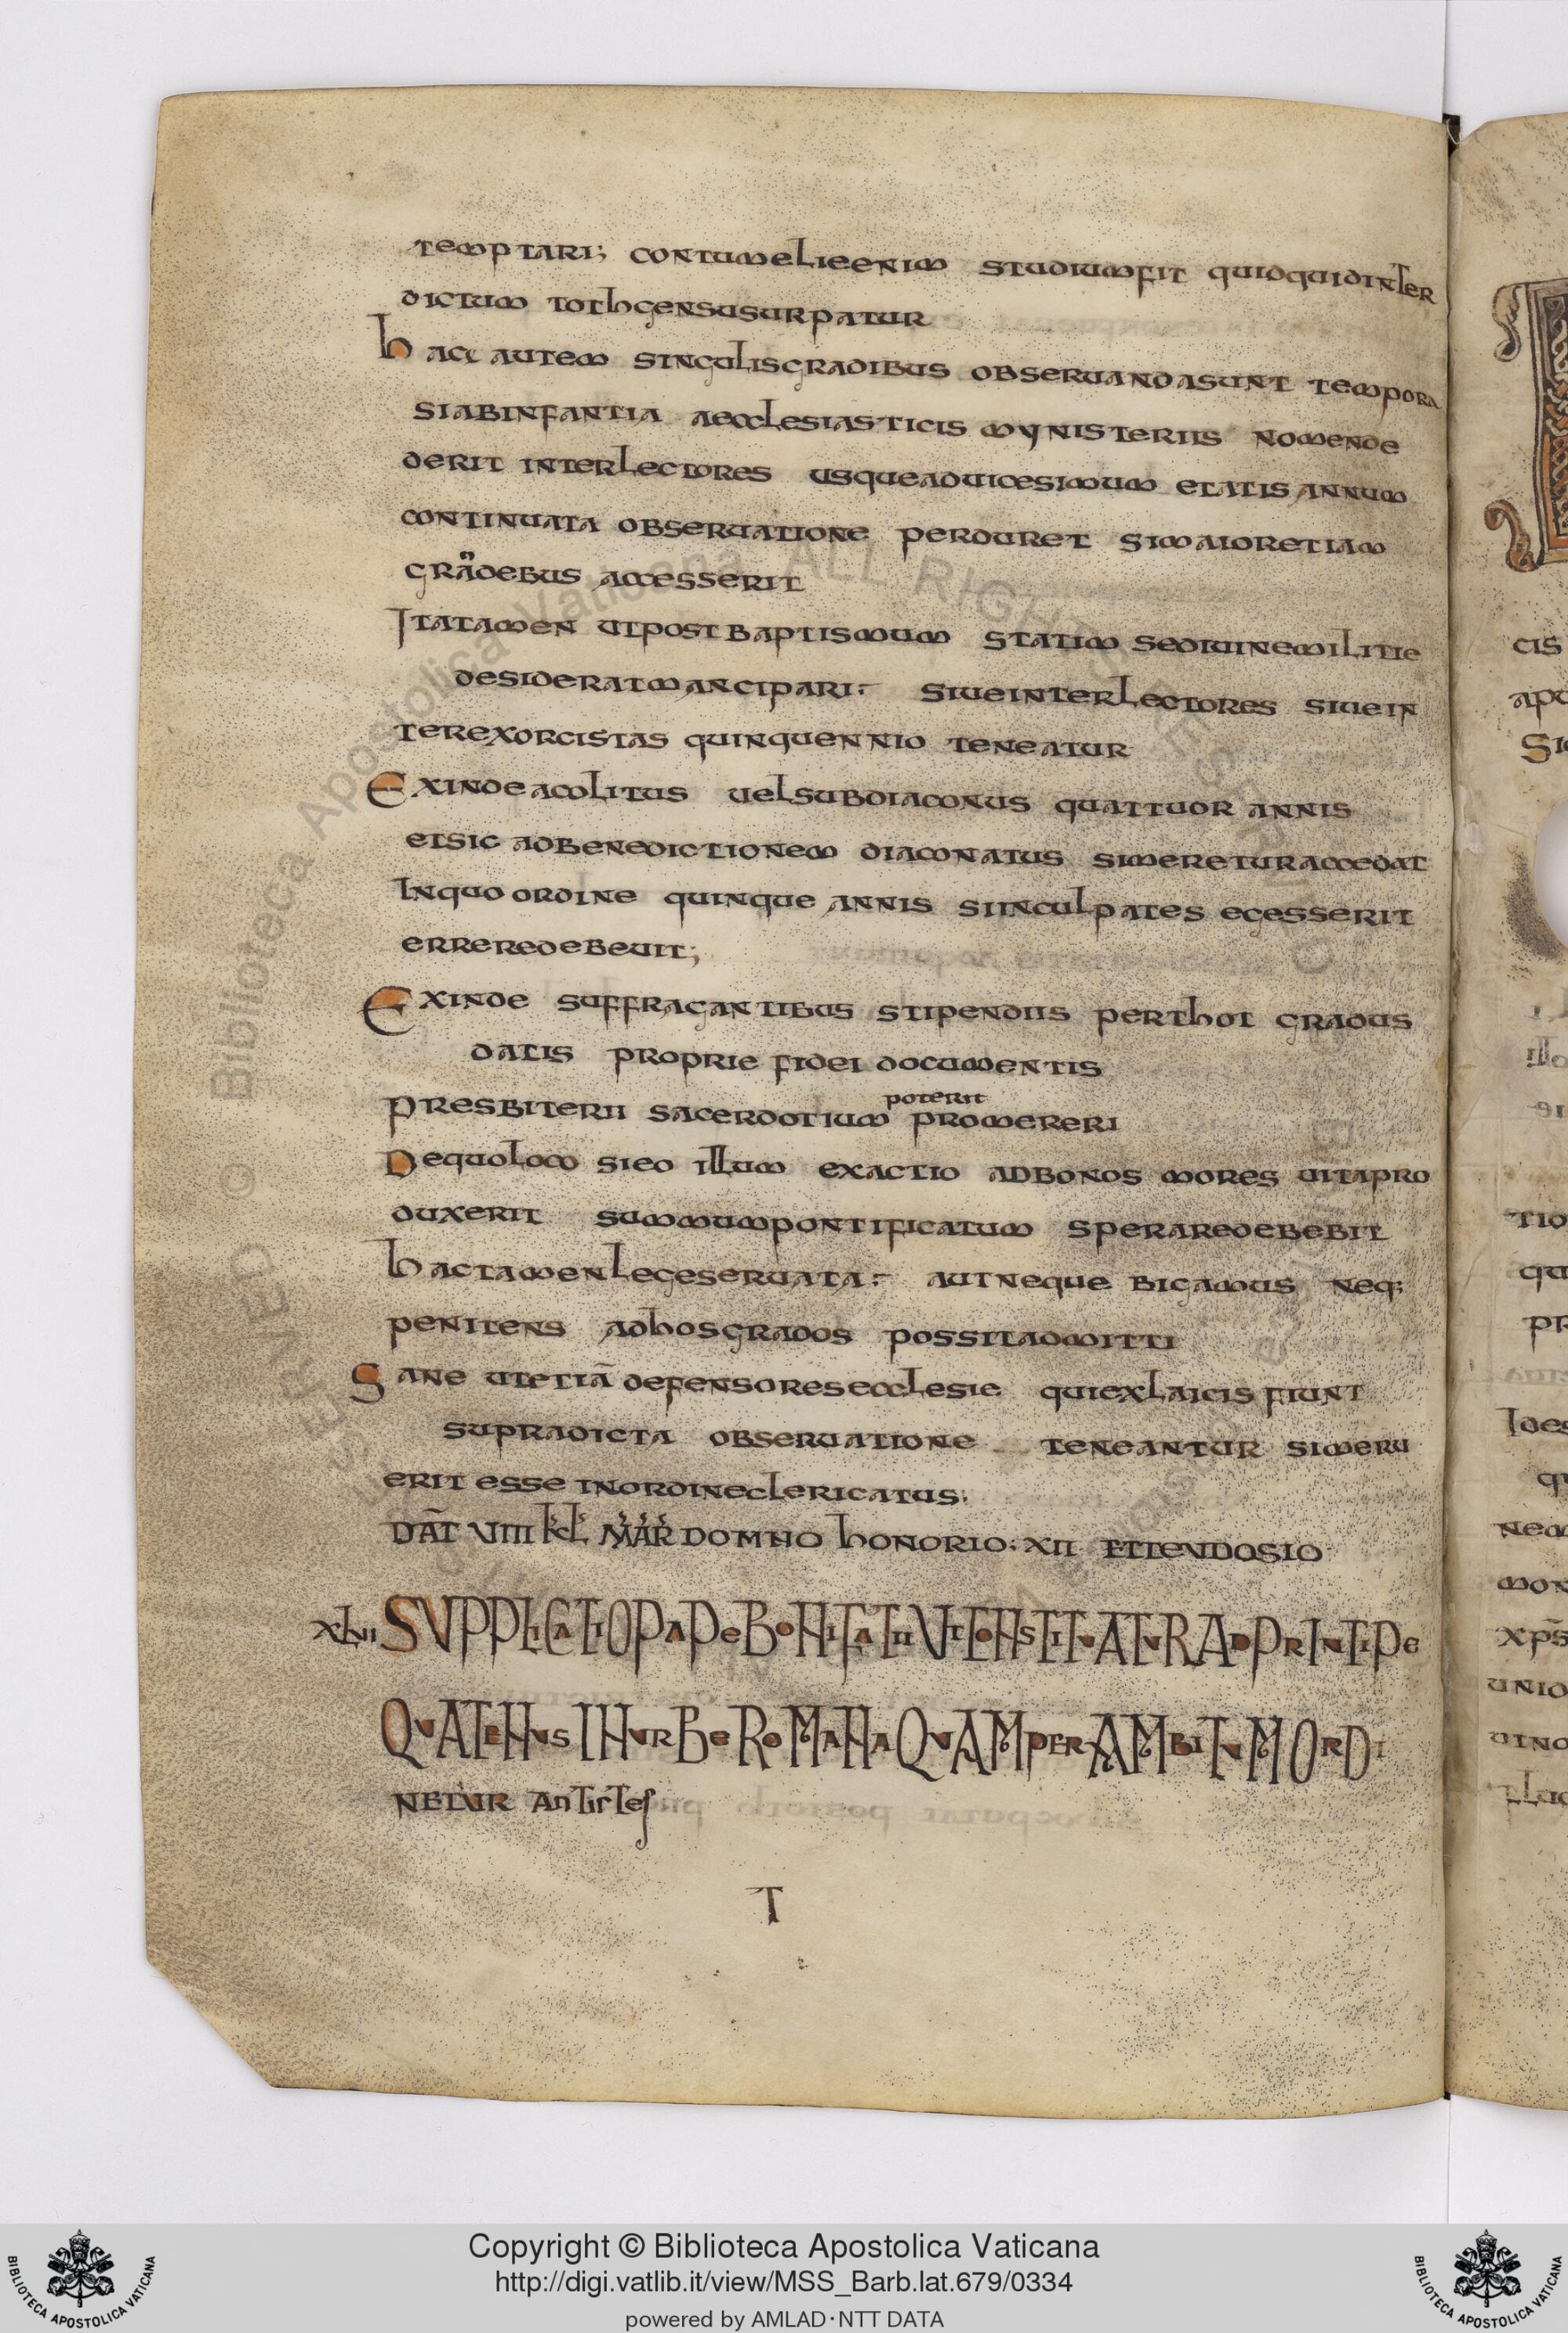 temptari; contumelie enim studium fit quidquid inter
dictum toth gens usurpatur
haec autem singulis gradibus observanda sunt tempora
si ab infantia aecclesiasticis mynisteriis nomen de
derit inter lectores usque ad vicesimum etatis annum
continuata observatione perduret si maior etiam
gradebus accesserit
Ita tamen ut post baptismum statim se divine militie
desiderat mancipari. sive inter lectores sive in
ter exorcistas quinquennio teneatur
Exinde acolitus vel subdiaconus quattuor annis
et sic ad benedictionem diaconatus si meretur accedat
In quo ordine quinque annis si inculpates egesserit
errere debevit;
Exinde suffragantibus stipendiis per thot gradus
datis proprie fidei documentis
poterit
presbiterii sacerdotium promereri
De quo loco si eo illum exactio ad bonos mores vita pro
duxerit summum pontificatum sperare debebit
hac tamen lege servata. aut neque bigamus neq;
penitens ad hos grados possit admitti
Sane ut etiā defensores ecclesie qui ex laicis fiunt
supra dicta observatione teneantur si meru
erit esse in ordine clericatus.
DAT̄ VIIII kl MAR DOMNO honorio. XII ET TEVDOSIO
XLII SVPPLICATIO PAPE BONIFATII VT CONSTITVATVR AD PRINTIPE
QVATENVS IN VRBE ROMANA QVAM PER AMBITVM ORDI
NETVR Antistes
T
Copyright © Biblioteca Apostolica Vaticana
http://digi.vatlib.it/view/MSS_Barb.lat.679/0334
powered by AMLAD·NTT DATA
BIBLIOTECA APOSTOLICA VATICANA
BIBLIOTECA APOSTOLICA VATICANA